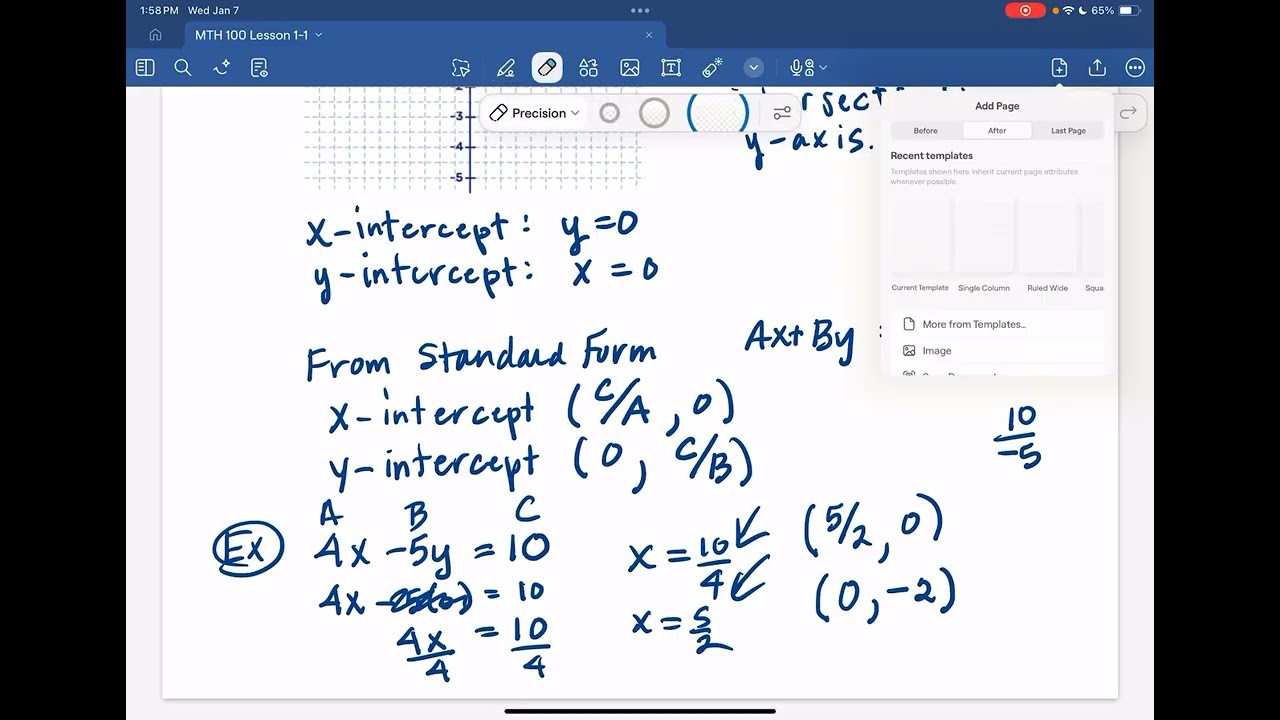 1:58 PM Wed Jan 7
65%
MTH 100 Lesson 1-1
Precision
-3
-4
-5
y-axis.
Add Page
Before After Last Page
Recent templates
Templates shown here inherit current page attributes
whenever possible.
Current Template Single Column Ruled Wide Squa
More from Templates...
Image
x-intercept: y=0
y-intercept: x = 0
From Standard Form Ax+By =
x-intercept (C/A, 0)
y-intercept (0, C/B)
10
-5
A B C
Ex 4x -5y = 10
4x = 10
4x/4 = 10/4
x = 10/4
x = 5/2
(5/2, 0)
(0, -2)